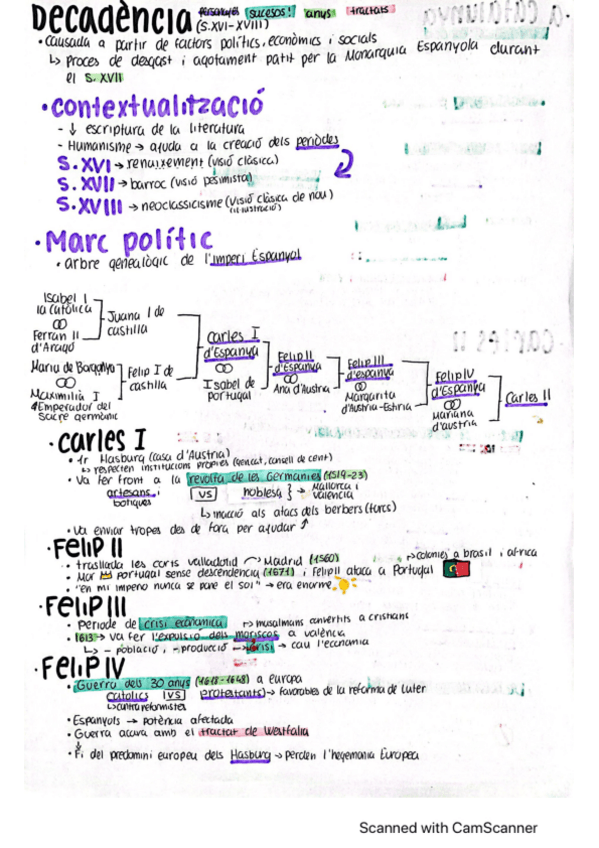 Decadència (S.XVI-XVIII) personatges sucesos! anys tractats
• causada a partir de factors polítics, econòmics i socials
↳ procés de desgast i agotament patit per la Monarquia Espanyola durant
el S. XVII
• contextualització
- ↓ escriptura de la literatura
- Humanisme → ajuda a la creació dels períodes
S. XVI → renaixement (visió clàsica)
S. XVII → barroc (visió pesimista)
S. XVIII → neoclassicisme (visió clàsica de nou)
(il·lustració)
• Marc polític
• arbre genealògic de l'imperi Espanyol
Isabel I
la Catòlica
Ferran II
d'Aragó
Juana I de
castilla
Maria de Borgonya
Maximilià I
Emperador del
Sacre germànic
Felip I de
castilla
Carles I
d'Espanya
Isabel de
Portugal
Felip II
d'Espanya
Ana d'Austria
Felip III
d'espanya
Margarita
d'Austria-Estiria
Felip IV
d'Espanya
Mariana
d'austria
Carles II
• carles I
• 1r Hasburg (casa d'Austria)
↳ respecten institucions pròpies (gencat, consell de cent)
• Va fer front a la revolta de les Germanies (1519-23)
artesans i botigues vs noblesa } → Mallorca i València
↳ inacció als atacs dels berbers (turcs)
• Va enviar tropes des de fora per ajudar
• Felip II
• traslada les corts valladolid → Madrid (1560)
→ colonies a brasil i africa
• Mor portugal sense descendència (1571) i Felip II ataca a Portugal
• "en mi impeno nunca se pone el sol" → era enorme
• FELIP III
• Període de crisi econòmica
→ musulmans convertits a cristians
• 1613 → va fer l'expulsió dels moriscos a valència
↳ - població i - producció → crisi → cau l'economia
• FELIP IV
• Guerra dels 30 anys (1618-1648) a europa
Catòlics vs protestants → favorables de la reforma de Luter
↳ contrareformistes
• Espanyols → potència afectada
• Guerra acava amb el tractat de Westfalia
• Fi del predomini europeu dels Hasburg → perden l'hegemonia Europea
Scanned with CamScanner